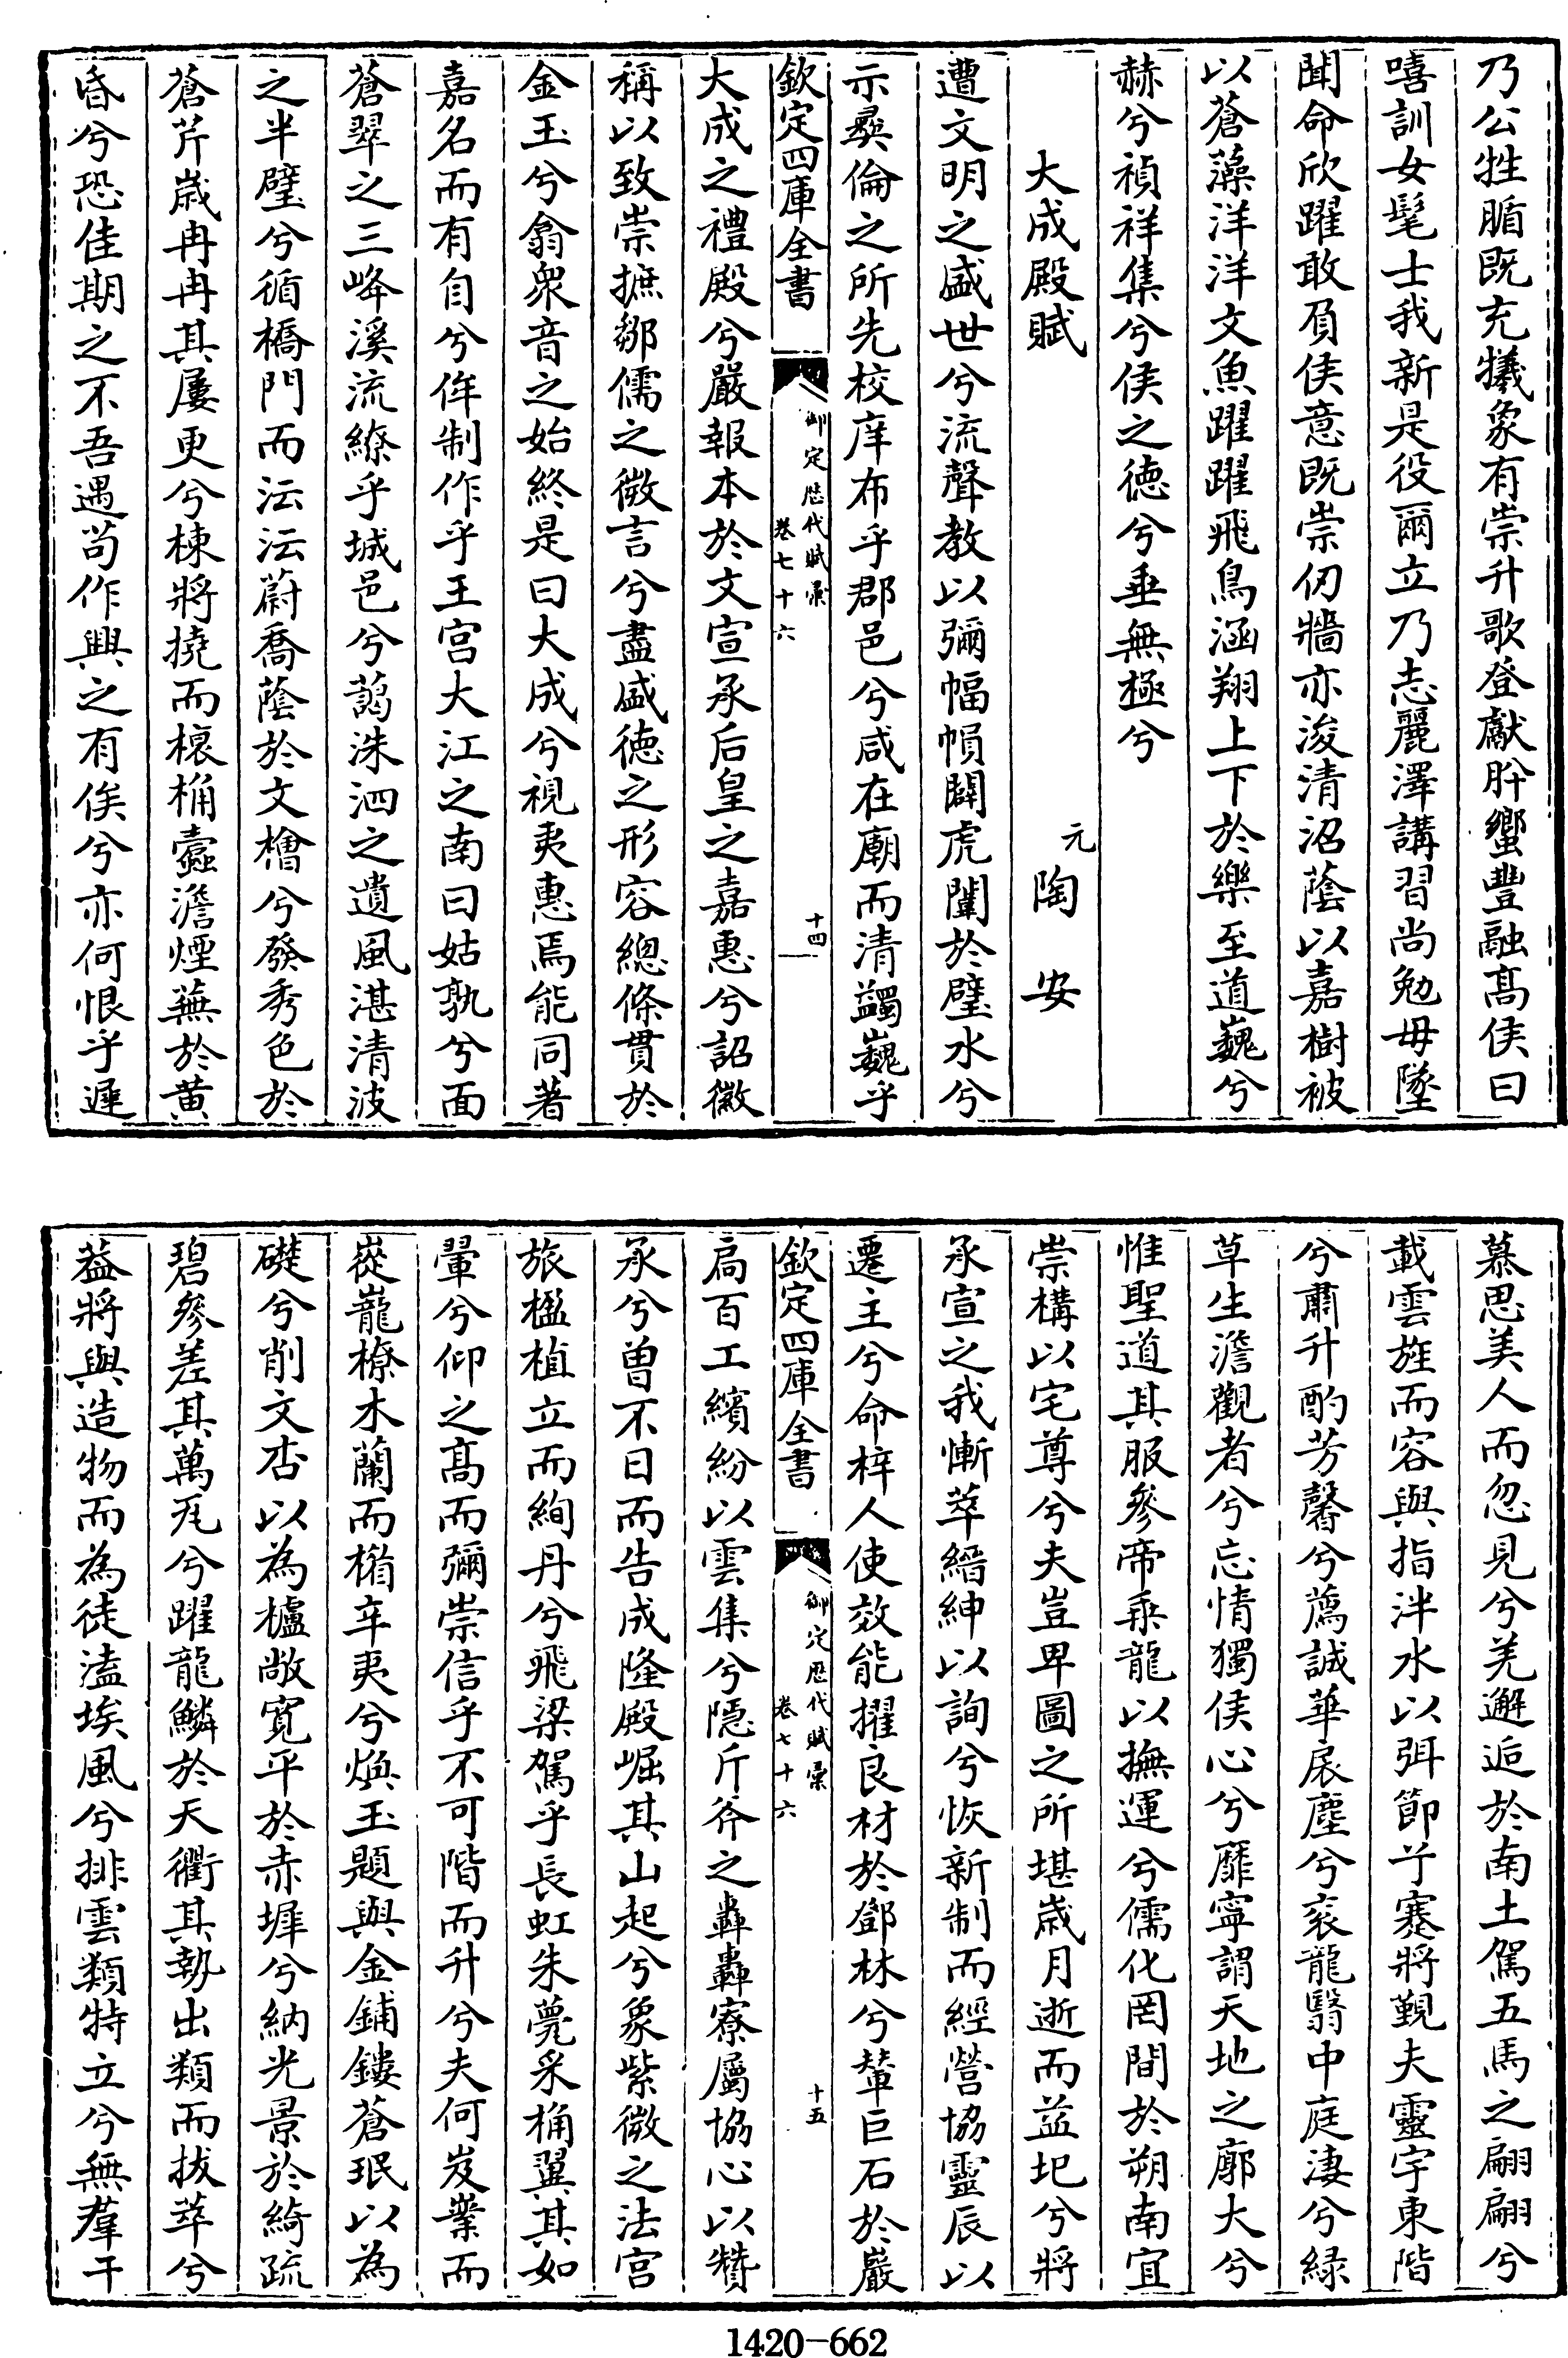 乃公牲腯既充犧象有崇升歌登獻肸蠁豐融髙侯曰
嘻訓女髦士我新是役爾立乃志麗澤講習尚勉毋墜
聞命欣躍敢負侯意既崇仞牆亦浚清沼蔭以嘉樹被
以蒼藻洋洋文魚躍躍飛鳥涵翔上下於樂至道巍兮
赫兮禎祥集兮侯之徳兮垂無極兮
大成殿賦
元陶安
遭文明之盛世兮流聲教以彌幅幀闢虎闈於璧水兮
示彞倫之所先校庠布乎郡邑兮咸在廟而清蠲巍乎
欽定四庫全書
御定歴代賦彙
卷七十六
十四
大成之禮殿兮嚴報本於文宣承后皇之嘉惠兮詔徽
稱以致崇摭鄒儒之微言兮盡盛徳之形容總條貫於
金玉兮翕衆音之始終是曰大成兮視夷惠焉能同著
嘉名而有自兮侔制作乎王宫大江之南曰姑孰兮面
蒼翠之三峰溪流繚乎城邑兮藹洙泗之遺風湛清波
之半璧兮循橋門而沄沄蔚喬蔭於文檜兮發秀色於
蒼芹嵗冉冉其屢更兮棟將撓而榱桷蠧澹煙蕪於黄
昏兮恐佳期之不吾遇茍作興之有俟兮亦何恨乎遲
慕思美人而忽見兮羌邂逅於南土駕五馬之翩翩兮
載雲旌而容與指泮水以弭節兮蹇將覲夫靈宇東階
兮肅升酌芳馨兮薦誠華扆塵兮衮龍翳中庭淒兮緑
草生澹觀者兮忘情獨侯心兮靡寧謂天地之廓大兮
惟聖道其服參帝乗龍以撫運兮儒化罔間於朔南宜
崇構以宅尊兮夫豈卑圖之所堪嵗月逝而益圮兮將
承宣之我慚萃縉紳以詢兮恢新制而經營協靈辰以
遷主兮命梓人使效能擢良材於鄧林兮輦巨石於巖
欽定四庫全書
御定歴代賦彙
卷七十六
十五
扃百工繽紛以雲集兮隠斤斧之轟轟寮屬協心以贊
承兮曽不日而告成隆殿崛其山起兮象紫微之法宫
旅楹植立而絢丹兮飛梁駕乎長虹朱甍采桷翼其如
翬兮仰之髙而彌崇信乎不可階而升兮夫何岌嶪而
嵸巃橑木蘭而楣辛夷兮煥玉題與金鋪鏤蒼珉以為
礎兮削文杏以為櫨敞寛平於赤墀兮納光景於綺疏
碧參差其萬瓦兮躍龍鱗於天衢其勢出類而拔萃兮
葢將與造物而為徒溘埃風兮排雲類特立兮無羣干
1420-662